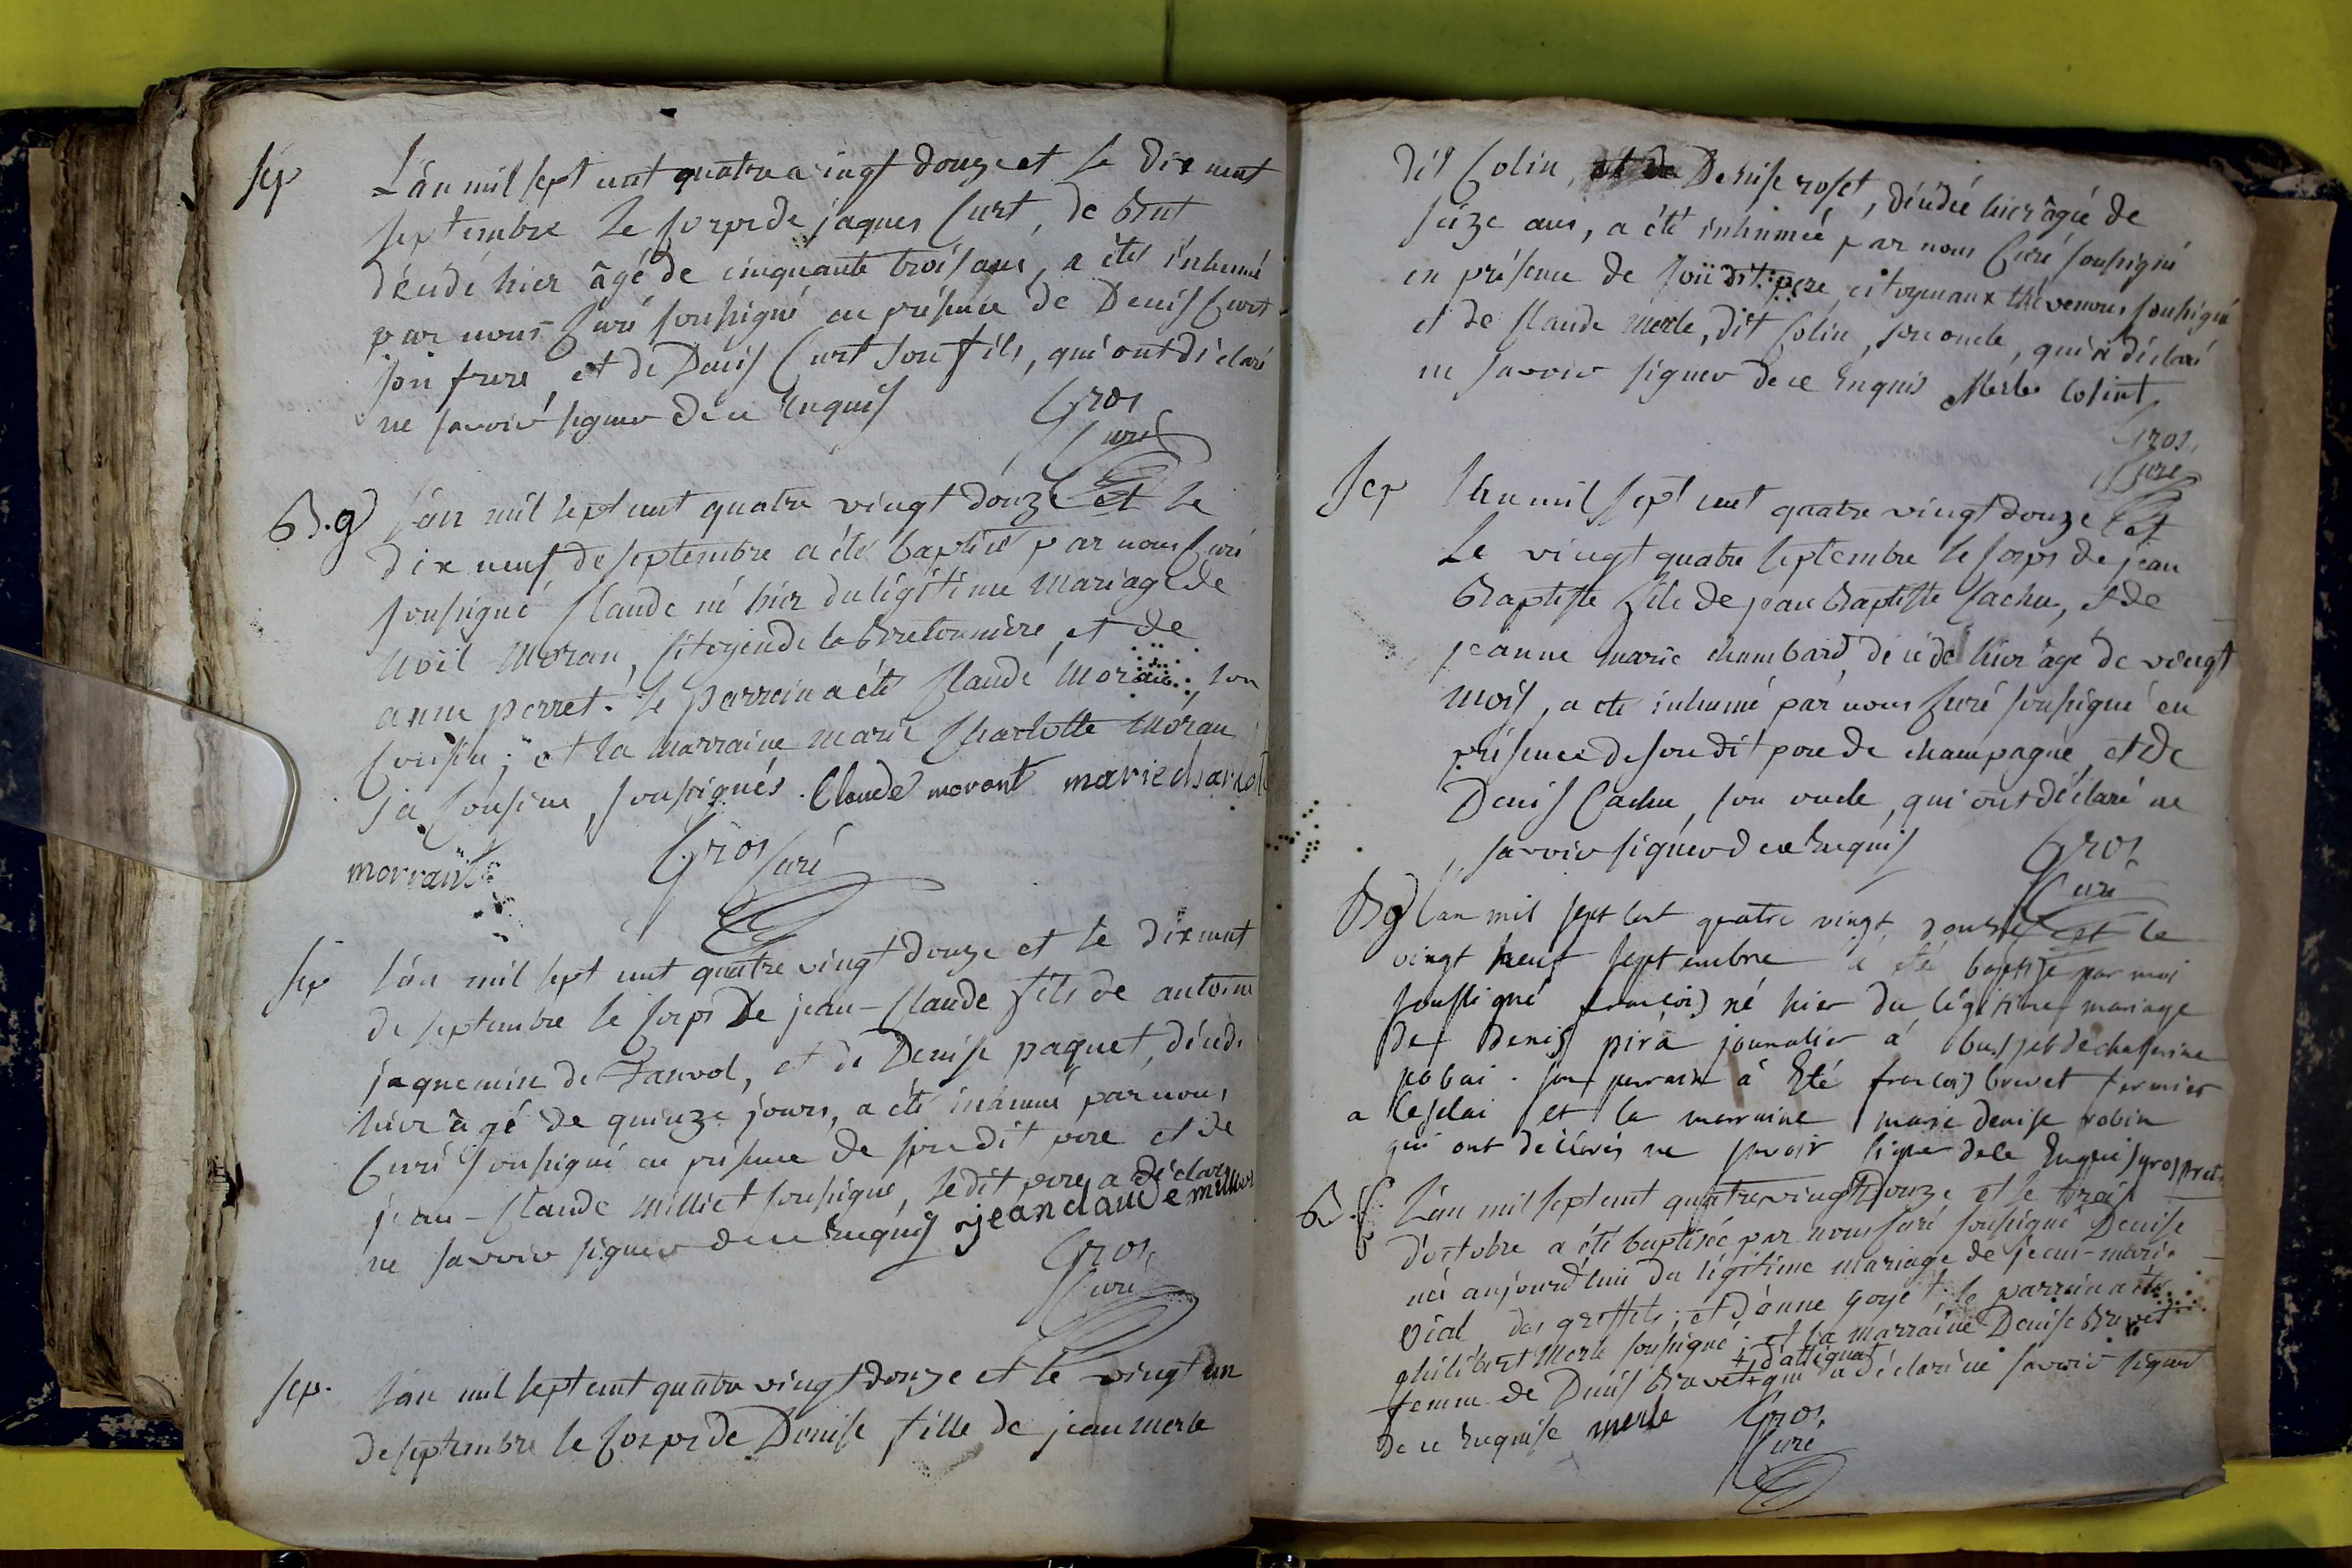 Sep L'an mil sept cent quatre vingt douze et le dix neuf
septembre le corps de jaques Curt, de
décédé hier âgé de cinquante trois ans, a été inhumé
par nous Curé soussigné en présence de Denis Curt
son frere, et de Denis Curt son fils, qui ont déclaré
ne savoir signer de ce Enquis Gros
Curé
B.g L'an mil sept cent quatre vingt douze et le
dix neuf de septembre a été baptisé par nous Curé
soussigné Claude né hier du légitime mariage de
Noël Moran, Citoyen de la Bretonnière, et de
anne perret. le parrain a été Claude Moran, son
Cousin; et la marraine marie Charlotte Moran
sa Cousine, soussignés. Claude morant marie charlote
morrant Gros Curé
Sep L'an mil sept cent quatre vingt douze et le dix neuf
de septembre le corps de jean-Claude fils de antoine
jaquemin de , et de Denise paquet, décédé
hier âgé de quinze jours, a été inhumé par nous
Curé soussigné en présence de son dit pere et de
jean-Claude Milliet soussigné, le dit pere a déclaré
ne savoir signer de ce Enquis jean claude milliet
Gros
Curé
Sep. L'an mil sept cent quatre vingt douze et le vingt un
de septembre le Corps de Denise fille de jean merle
dit Colin, et de Denise roset, décédée hier âgée de
seize ans, a été inhumée par nous Curé soussigné
en présence de son dit pere, citoyen aux thévenons soussigné
et de Claude merle, dit Colin, son oncle, qui a déclaré
ne savoir signer de ce Enquis Merle Colint
Gros,
Curé
Sep L'an mil sept cent quatre vingt douze et
Le vingt quatre septembre le corps de jean
Baptiste fils de jean Baptiste Cachu, et de
jeanne marie chambard décédé hier âgé de vingt
mois, a été inhumé par nous Curé soussigné en
présence de son dit pere de champagne, et de
Denis Cachu, son oncle, qui ont déclaré ne
savoir signer de ce Enquis Gros
Curé
Bg L'an mil sept cent quatre vingt douze et le
vingt neuf septembre a été baptisé par moi
soussigné françois né hier du légitime mariage
de Denis pirà journalier à et de catherine
pobai. son parrain à Eté françois brevet fermier
a et la marraine marie denise robin
qui ont déclarés ne savoir signer de ce Enquis gros
B.f. L'an mil sept cent quatre vingt Douze et le trois
d'octobre a été baptisée par nous Curé soussigné Denise
née aujourd'hui du légitime mariage de jean-marie
Vial des greffets; et d'anne goyet; le parrain a été
philibert Merle soussigné; et la marraine Denise Bravet
+ d'attignat
femme de Denis Bravet + qui a déclaré ne savoir signer
de ce Enquise merle Gros,
Curé